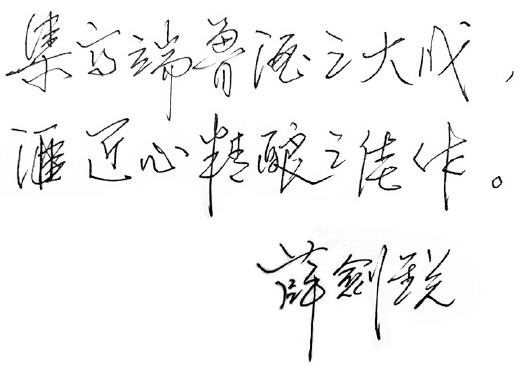 集高端鲁酒之大成，
汇匠心精酿之佳作。
薛剑锐